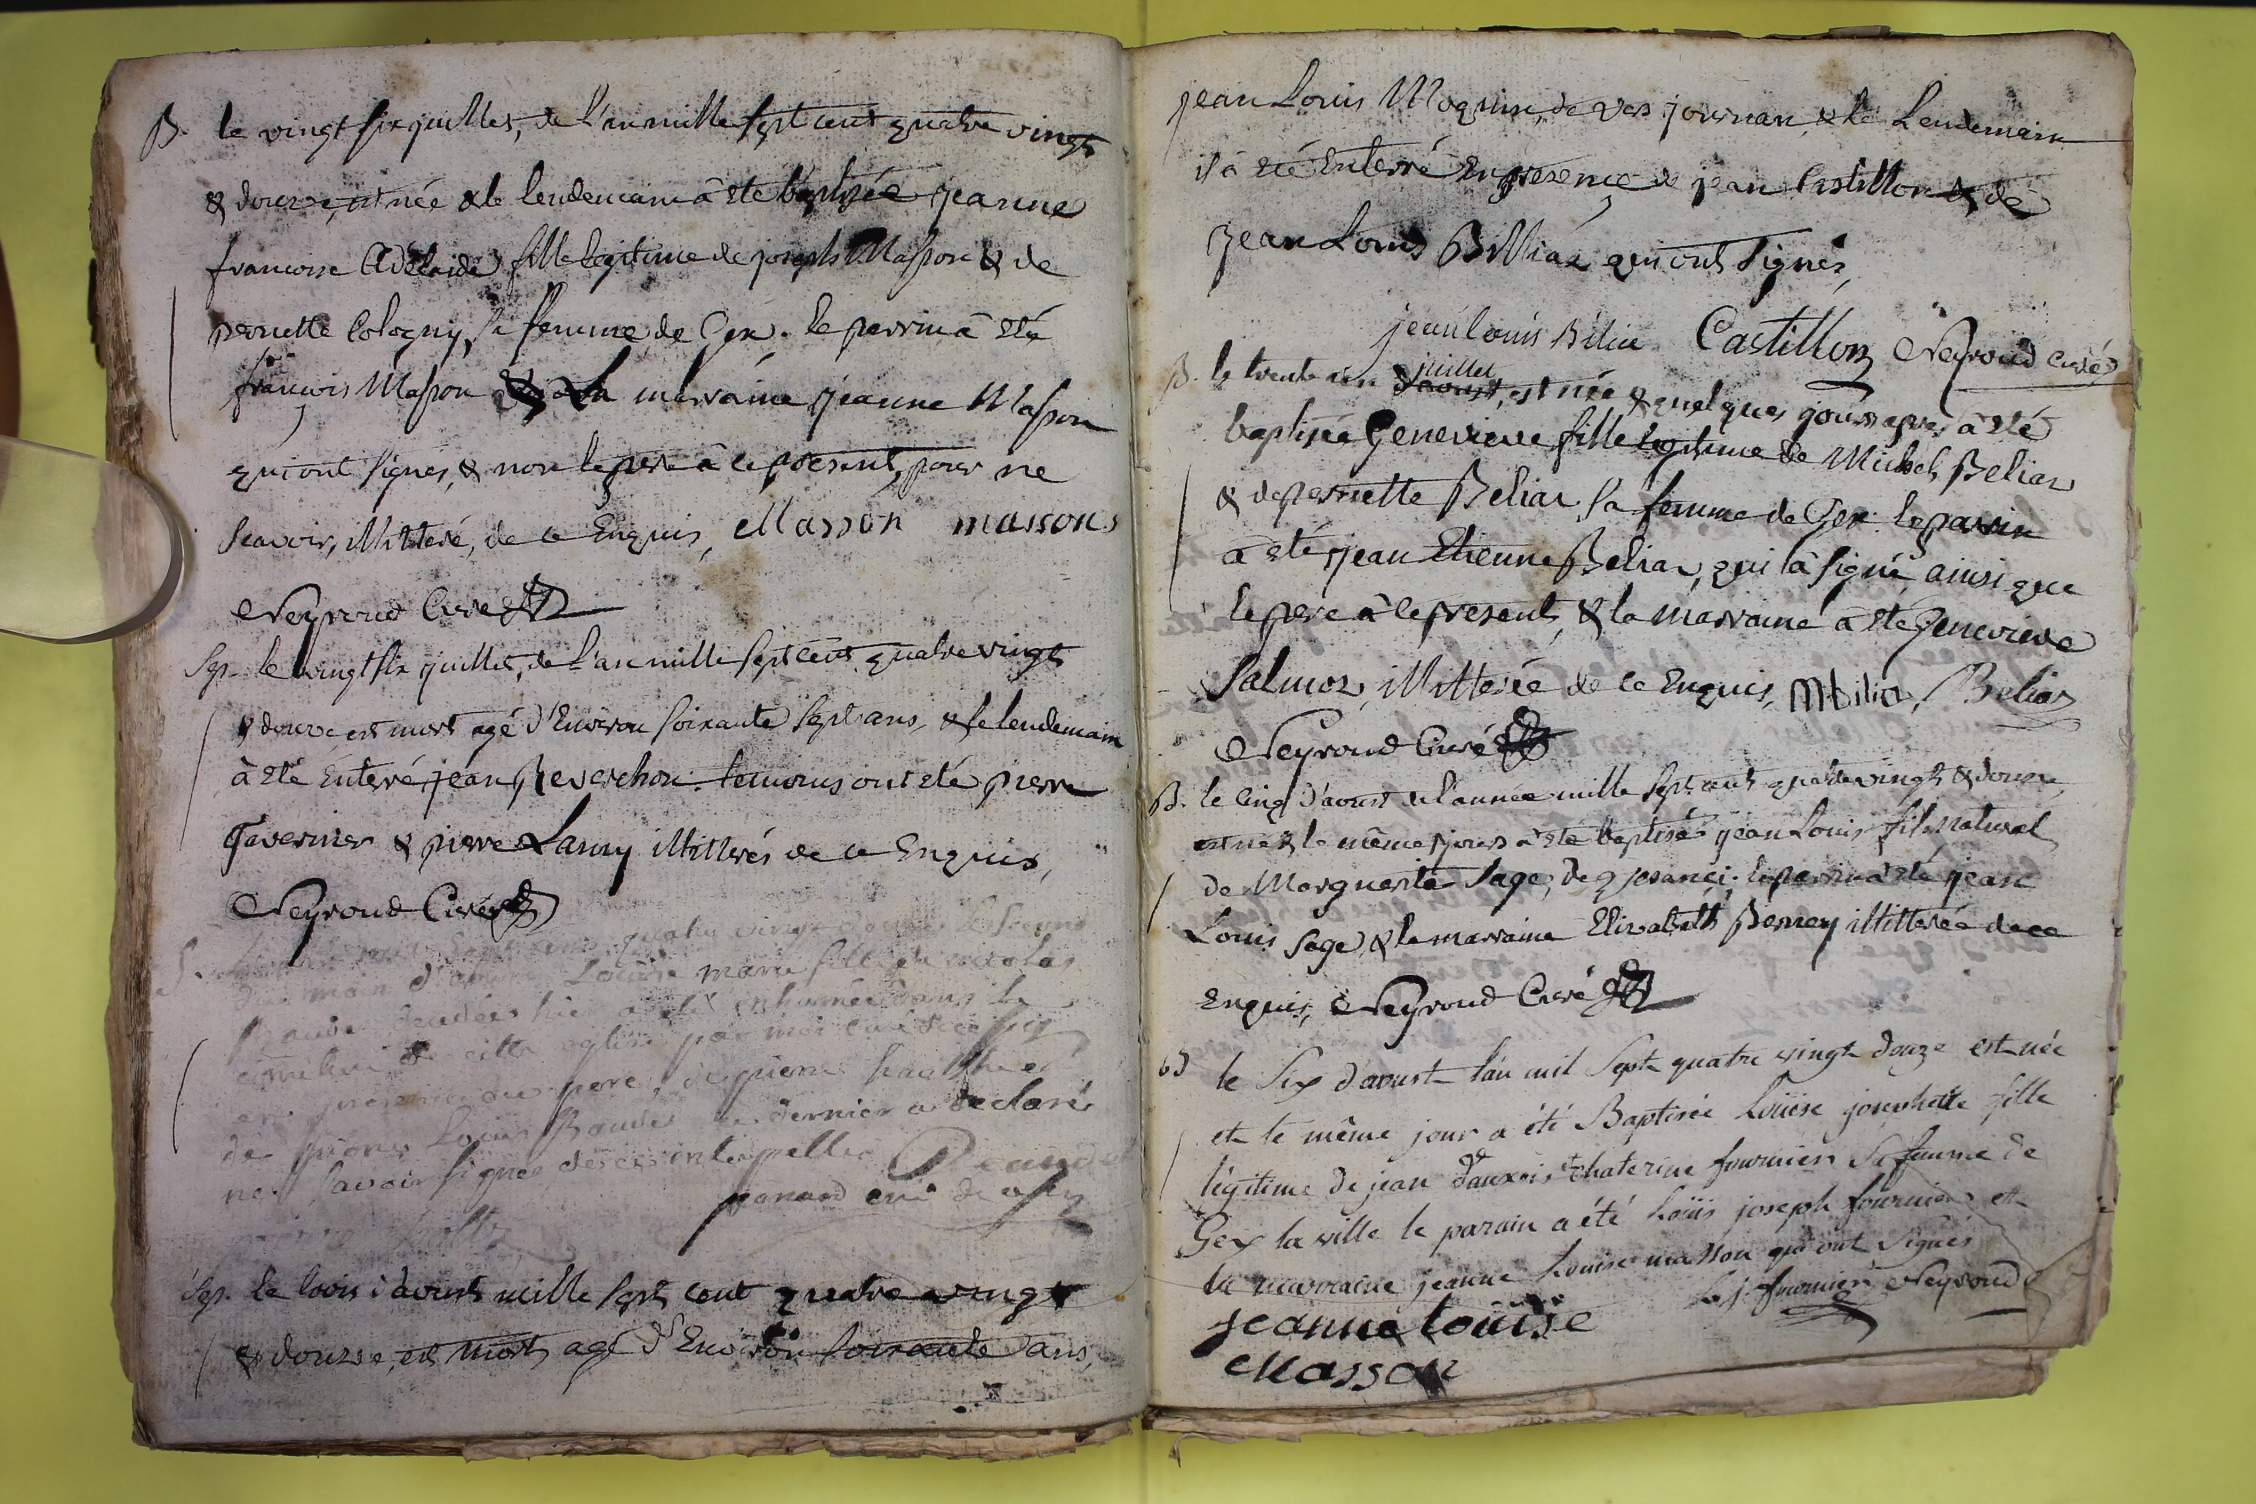 B. le vingt six juillet, de l'an mille sept cent quatre vingt
& douze, est née & le lendemain à été baptisée jeanne
francoise Adélaide fille legitime de joseph Masson & de
pernette Cologny, sa femme de Gex. le parrin à été
françois Masson & la marraine jeanne Masson
qui ont signés, & non le pere à ce present, pour ne
scavoir, illitteré, de ce Enquis, Masson massons
Neyroud Curé
Sep. le vingt six juillet, de l'an mille sept cent quatre vingt
& douze, est mort agé d'Environ soixante sept ans, & le lendemain
à été Enterré jean Reverchon. temoins ont été pierre
Tavernier & pierre Lanny illitterés de ce Enquis,
Neyroud Curé
S. mil sept cens quatre vingt douze & le
du mois d'aout Louïse marie fille de nicolas
Baudet decedée hier a été enhumée dans le
cimétiere de cette eglise par moi curé de
en presence du pere, de pierre et
de Louis Baudet ce dernier a declaré
ne savoir signer de ce interpellé Beaudet
panard curé de
Sep. le trois d'aoust mille sept cent quatre vingt
& douze, est mort agé d'Environ soixante ans,
jean Louis Moquin, de vers journan, & le Lendemain
il à été Enterré En presence de jean Castillon & de
jean Louis Billiar qui ont signés,
jean louis Biliar Castillon Neyroud curé
B. le trente un juillet d'aoust, est née & quelques jours apres à été
baptisée Genevieve fille legitime de Michel Beliar
& de pernette Beliar sa femme de Gex le parrin
à été jean Etienne Beliar, qui à signé, ainsi que
le pere à ce present, & la marraine à été Genevieve
Salmoz, illitterée de ce Enquis, Mbiliar, Beliar
Neyroud Curé
B. le cinq d'aoust de l'année mille sept cent quatre vingt & douze,
est né & le même jour à été baptisé jean Louis fils naturel
de Marguerite Sage, de le parrin à été jean
Louis Sage & la marraine Elizabeth Perney illitterée de ce
Enquis, Neyroud Curé
B le Six d'aoust l'an mil Sept quatre vingt douze est née
et le même jour a été Baptisée Louïse josephette fille
légitime de jean dauxois et Chaterine fournier Sa femme de
Gex la ville le parain a été Louis joseph fournier et
la marraine jeanne Louise masson qui ont Signés
L. j. fournier Neyroud
jeanne louise
Masson